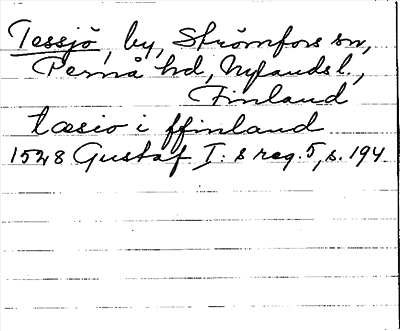 Tessjö, by, Strömfors sn,
Pernå hd, Nylands l.,
Finland
tæsio i ffinland
1528 Gustaf I: s reg. 5, s. 194